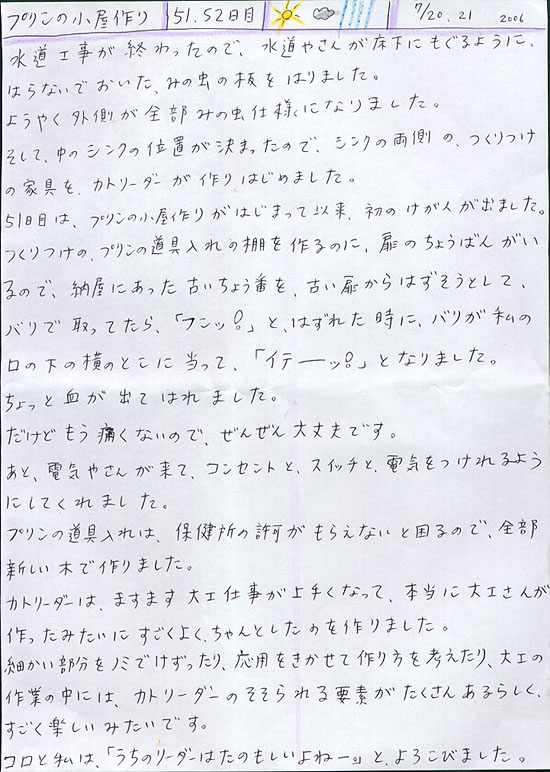 プリンの小屋作り 51.52日目 7/20.21 2006
水道工事が終わったので、水道やさんが床下にもぐるように、
はらないでおいた、みの虫の板をはりました。
ようやく外側が全部みの虫仕様になりました。
そして、中のシンクの位置が決まったので、シンクの両側の、つくりつけ
の家具を、カトリーダーが作りはじめました。
51日目は、プリンの小屋作りがはじまって以来、初のけが人が出ました。
つくりつけの、プリンの道具入れの棚を作るのに、扉のちょうばんがい
るので、納屋にあった古いちょう番を、古い扉からはずそうとして、
バリで取ってたら、「フンッ!」と、はずれた時に、バリが私の
口の下の横のとこに当って、「イテーッ!」となりました。
ちょっと血が出てはれました。
だけどもう痛くないので、ぜんぜん大丈夫です。
あと、電気やさんが来て、コンセントと、スイッチと、電気をつけれるよう
にしてくれました。
プリンの道具入れは、保健所の許可がもらえないと困るので、全部
新しい木で作りました。
カトリーダーは、ますます大工仕事が上手くなって、本当に大工さんが
作ったみたいにすごくよく、ちゃんとしたのを作りました。
細かい部分をノミでけずったり、応用をきかせて作り方を考えたり、大工の
作業の中には、カトリーダーのそそられる要素がたくさんあるらしく、
すごく楽しいみたいです。
コロと私は、「うちのリーダーはたのもしいよねー。」と、よろこびました。